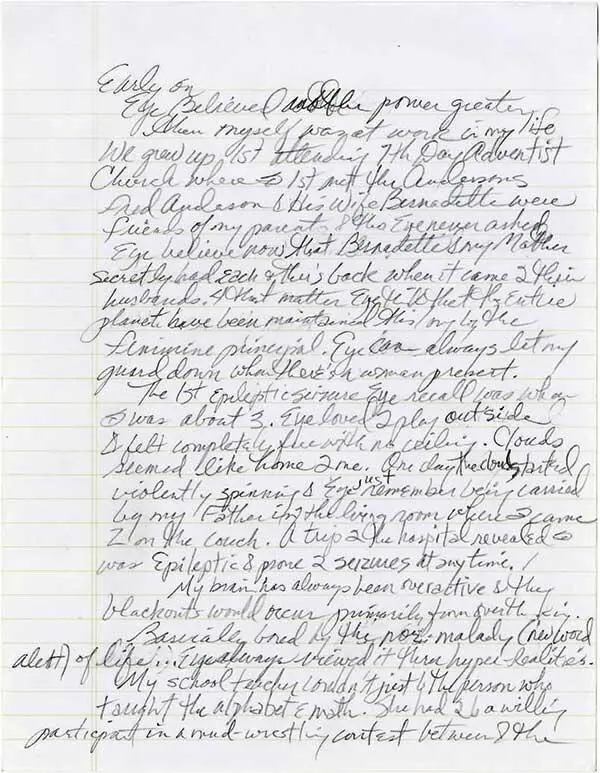 Early on
Eye Believed a power greater
than myself was at work in my life
We grew up 1st attending 7th Day Adventist
Church where 👁 1st met the Andersons
Fred Anderson & His Wife Bernadette were
friends of my parents & tho Eye never asked
Eye believe now that Bernadette & my Mother
secretly had Each other's back when it came 2 their
husbands. 4 that matter Eye that the Entire
planet have been maintained this way by the
feminine principal. Eye can always let my
guard down when there's a woman present.
The 1st Epileptic seizure Eye recall was when
👁 was about 3. Eye loved 2 play outside
& felt completely free with no ceiling. Clouds
seemed like home 2 me. One day the clouds started
violently spinning & Eye just remember being carried
by my Father in2 the living room where 👁 came
2 on the couch. A trip 2 the hospital revealed 👁
was Epileptic & prone 2 seizures at any time.
My brain has always been overactive & the
blackouts would occur primarily from
Basicaley bored by the nor-malady (new word
alert) of life... Eye always viewed it thru hyper-realities.
My school teacher couldn't just B the person who
taught the alphabet & math. She had 2 b a willing
participant in a mud-wrestling contest between & the